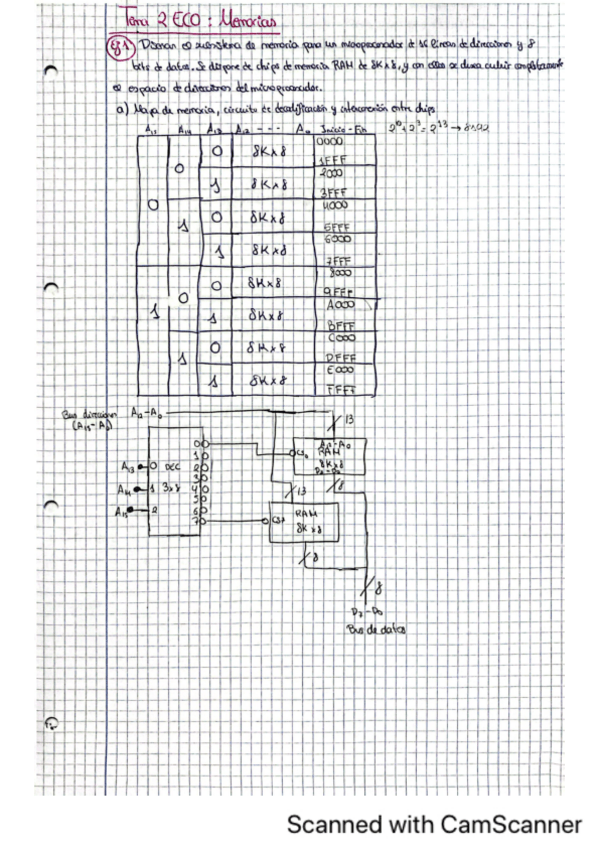 Tema 2 ECO: Memorias
Ej 1 Diseñar el subsistema de memoria para un microprocesador de 16 líneas de direcciones y 8
bits de datos. Se dispone de chips de memoria RAM de 8K x 8, y con ellos se desea cubrir completamente
el espacio de direcciones del microprocesador.
a) Mapa de memoria, circuito de decodificación y interconexión entre chips
A15 A14 A13 A12 --- A0 Inicio - Fin 2^0 + 2^3 = 2^13 → 8192
0 0 0 8K x 8 0000
1FFF
1 8K x 8 2000
3FFF
1 0 8K x 8 4000
5FFF
1 8K x 8 6000
7FFF
1 0 0 8K x 8 8000
9FFF
1 8K x 8 A000
BFFF
1 0 8K x 8 C000
DFFF
1 8K x 8 E000
FFFF
Bus direcciones A12-A0
(A15-A0)
13
A13 0 DEC
A14 1 3x8
A15 2
0
1
2
3
4
5
6
7
CS0
A12-A0
RAM
8K x 8
D7-D0
13
8
CS7 RAM
8K x 8
8
8
D7-D0
Bus de datos
Scanned with CamScanner